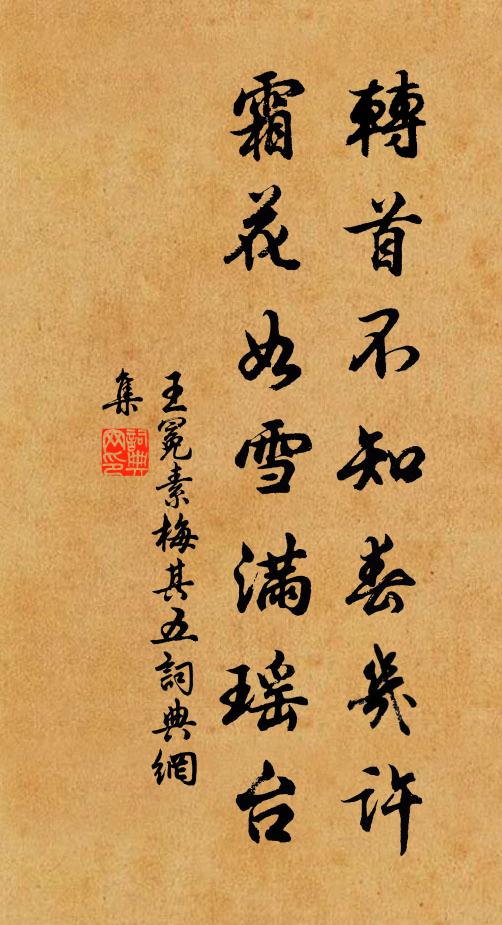 轉首不知春幾許
霜花如雪滿瑶台
王冕素梅其五詞典網
集
詞典網印